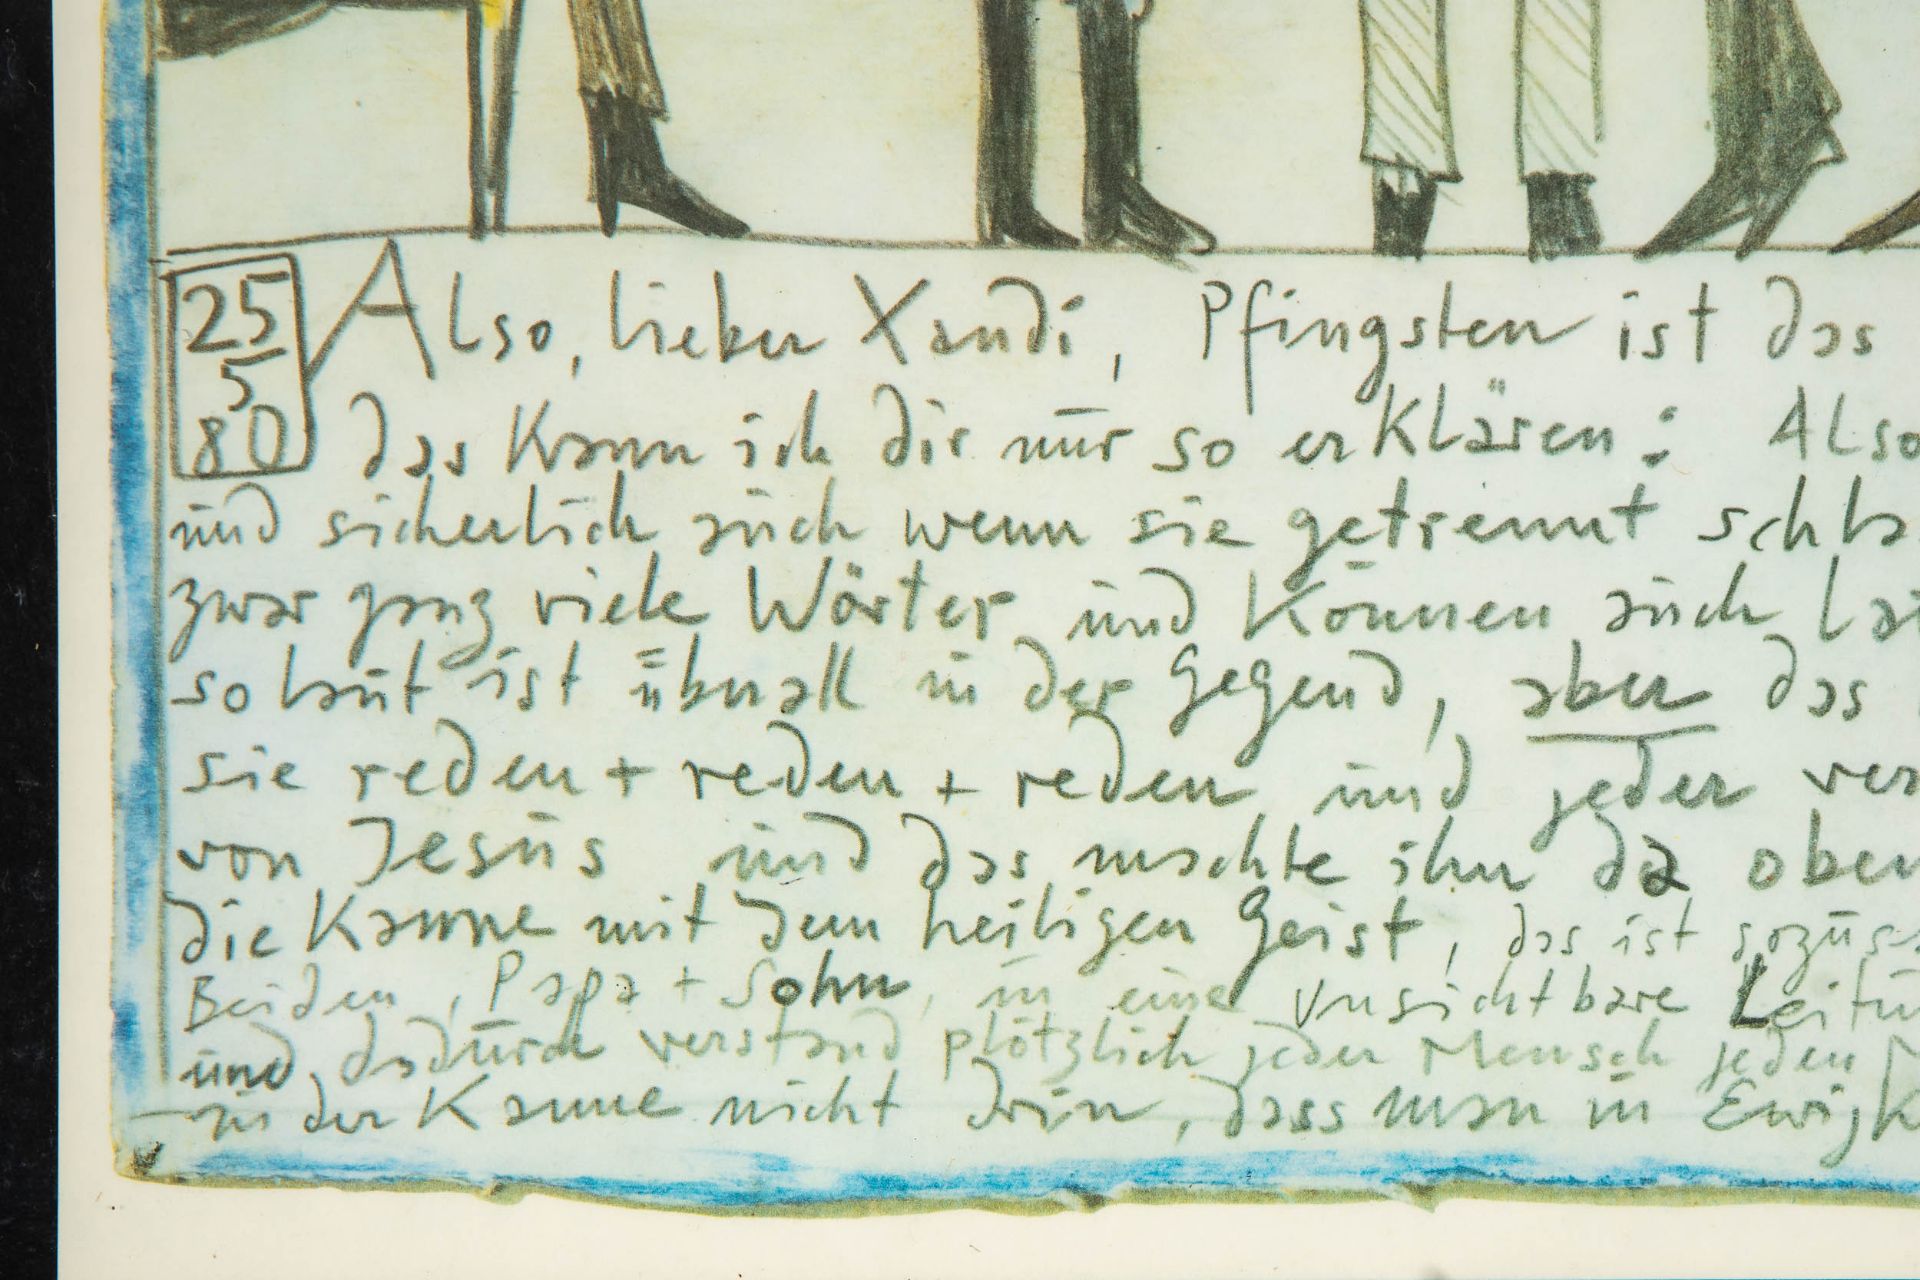 25
5
80
Also, lieber Xandi, Pfingsten ist das
das kann ich dir nur so erklären: Also
und sicherlich auch wenn sie getrennt schla
zwar ganz viele Wörter und können auch la
so laut ist überall in der Gegend, aber das
sie reden + reden + reden und jeder ver
von Jesus und das machte ihn da oben
die Kanne mit dem heiligen Geist, das ist sozusa
Beiden, Papa + Sohn, in eine Unsichtbare Leitu
und dadurch verstand plötzlich jeder Mensch jeden M
in der Kanne nicht drin, dass man in Ewigk